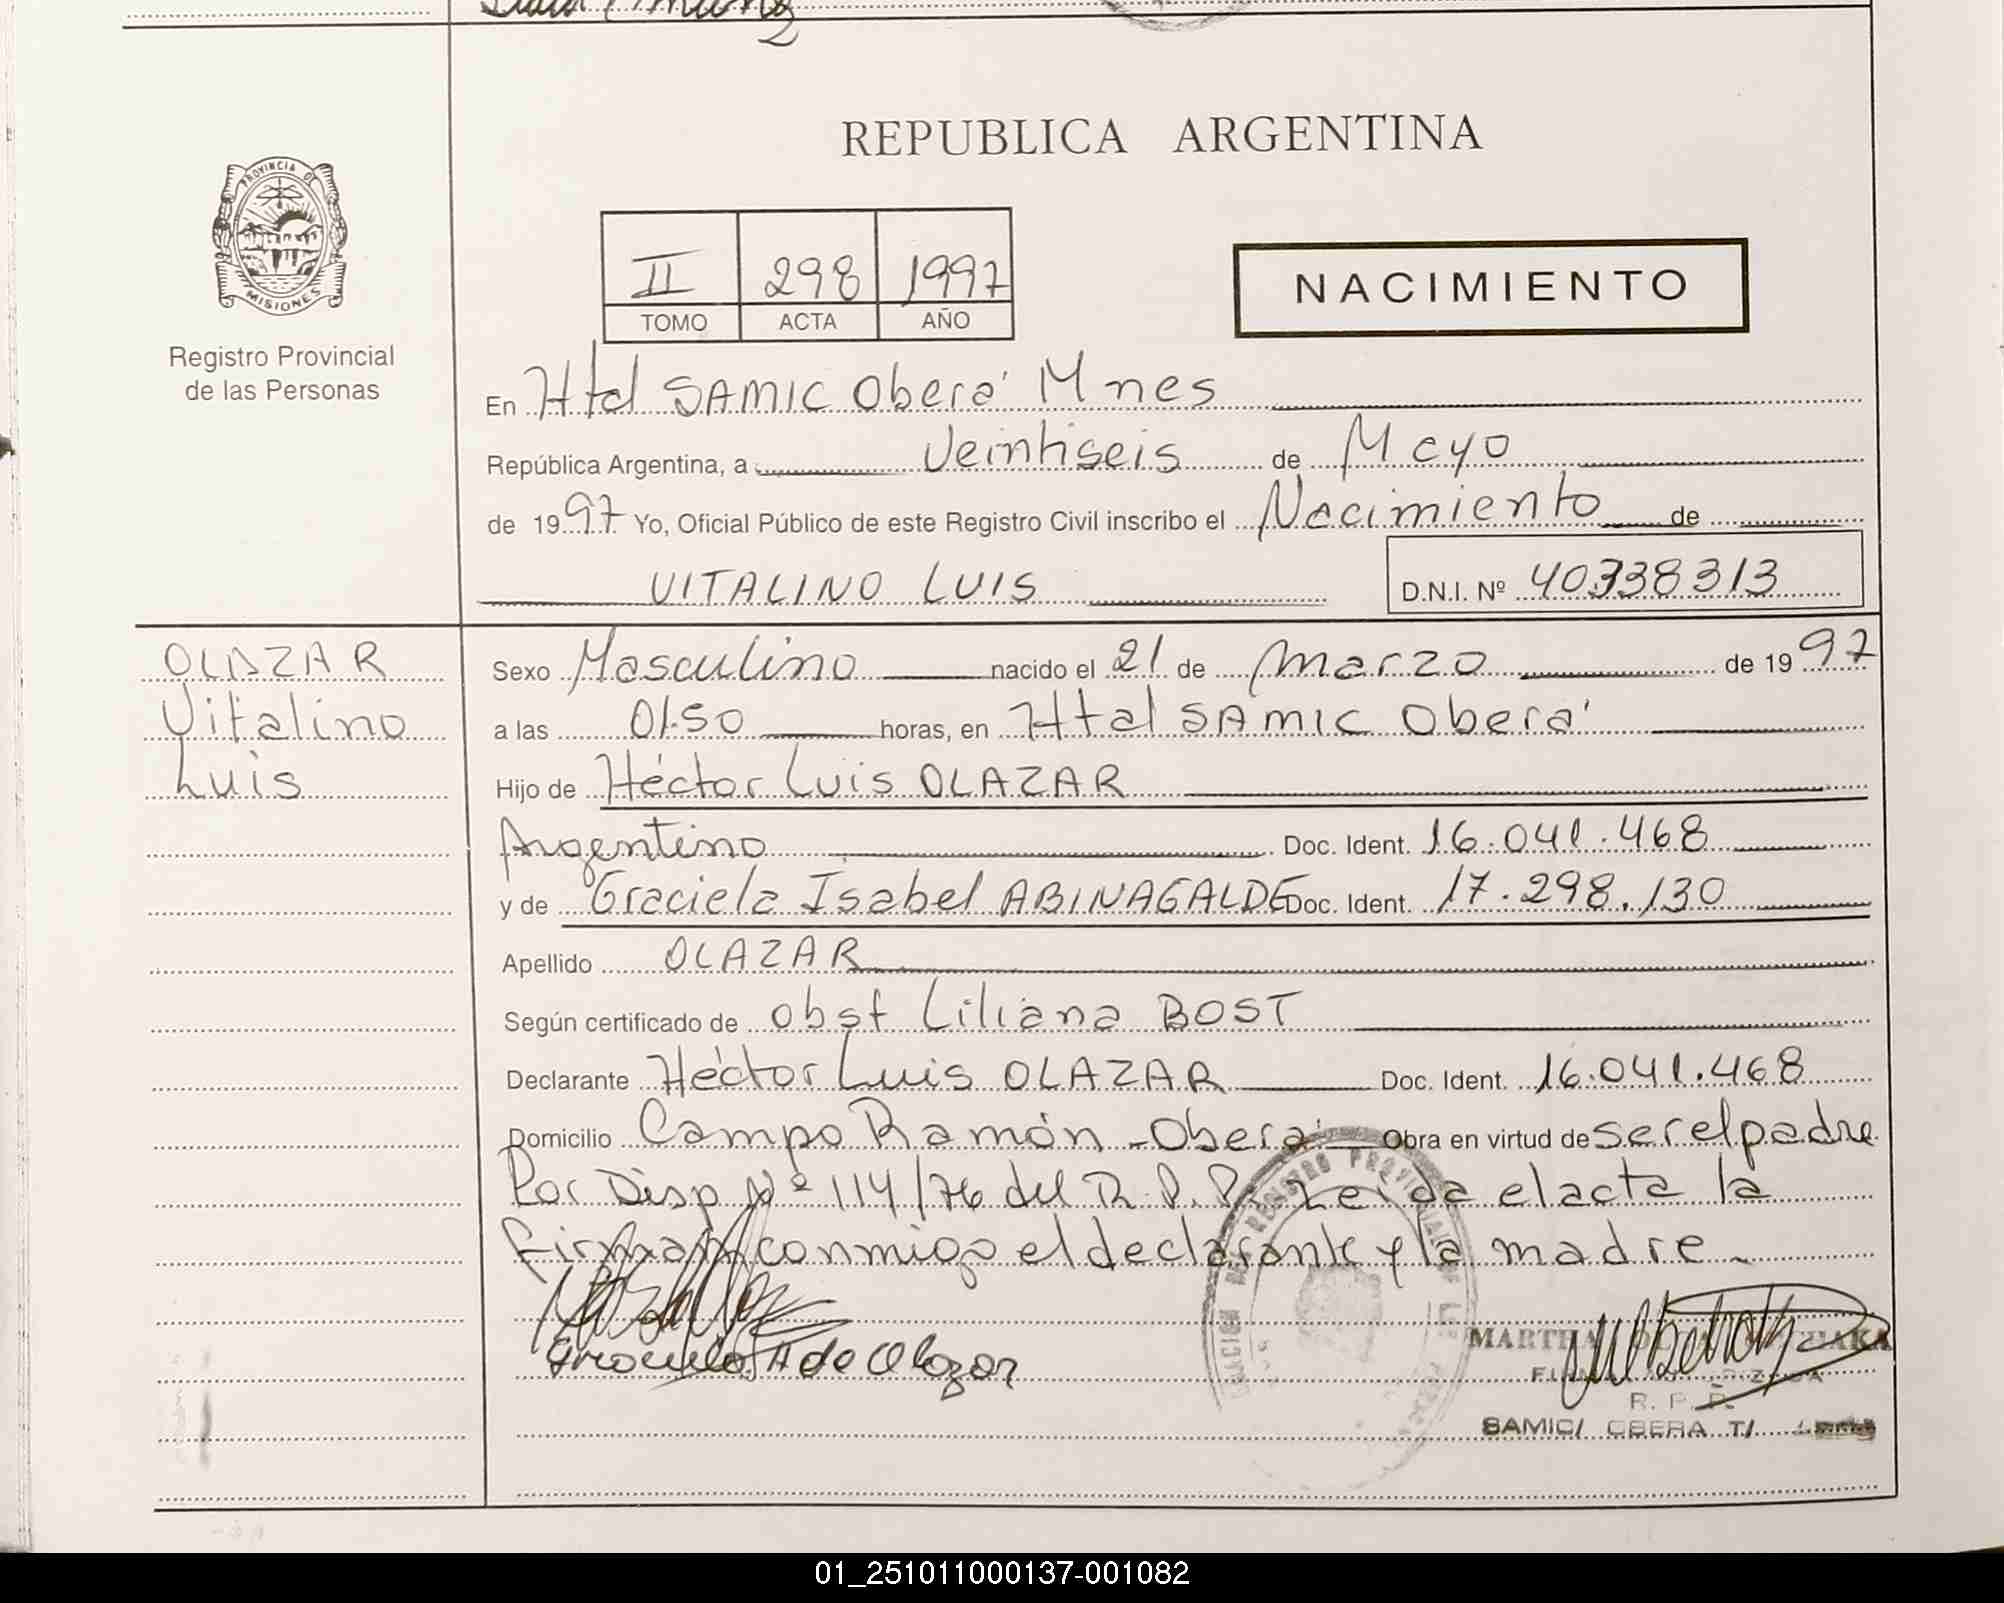 PROVINCIA DE
MISIONES
Registro Provincial
de las Personas
REPUBLICA ARGENTINA
II 298 1997
TOMO ACTA AÑO
NACIMIENTO
En Htal SAMIC Oberá Mnes
República Argentina, a Veintiseis de Mayo
de 1997 Yo, Oficial Público de este Registro Civil inscribo el Nacimiento de
VITALINO LUIS D.N.I. Nº 40338313
OLAZAR
Vitalino
Luis
Sexo Masculino nacido el 21 de marzo de 1997
a las 01.50 horas, en Htal SAMIC Oberá
Hijo de Héctor Luis OLAZAR
Argentino Doc. Ident. 16.041.468
y de Graciela Isabel ABINAGALDE Doc. Ident. 17.298.130
Apellido OLAZAR
Según certificado de obst Liliana BOST
Declarante Héctor Luis OLAZAR Doc. Ident. 16.041.468
Domicilio Campo Ramón - Oberá Obra en virtud de ser el padre
Por Disp Nº 114/76 del R.P.P. Leida el acta la
firman conmigo el declarante y la madre
Graciela A de Olazar
MARTHA
R. P. P.
SAMIC/ OBERA T/
01_251011000137-001082